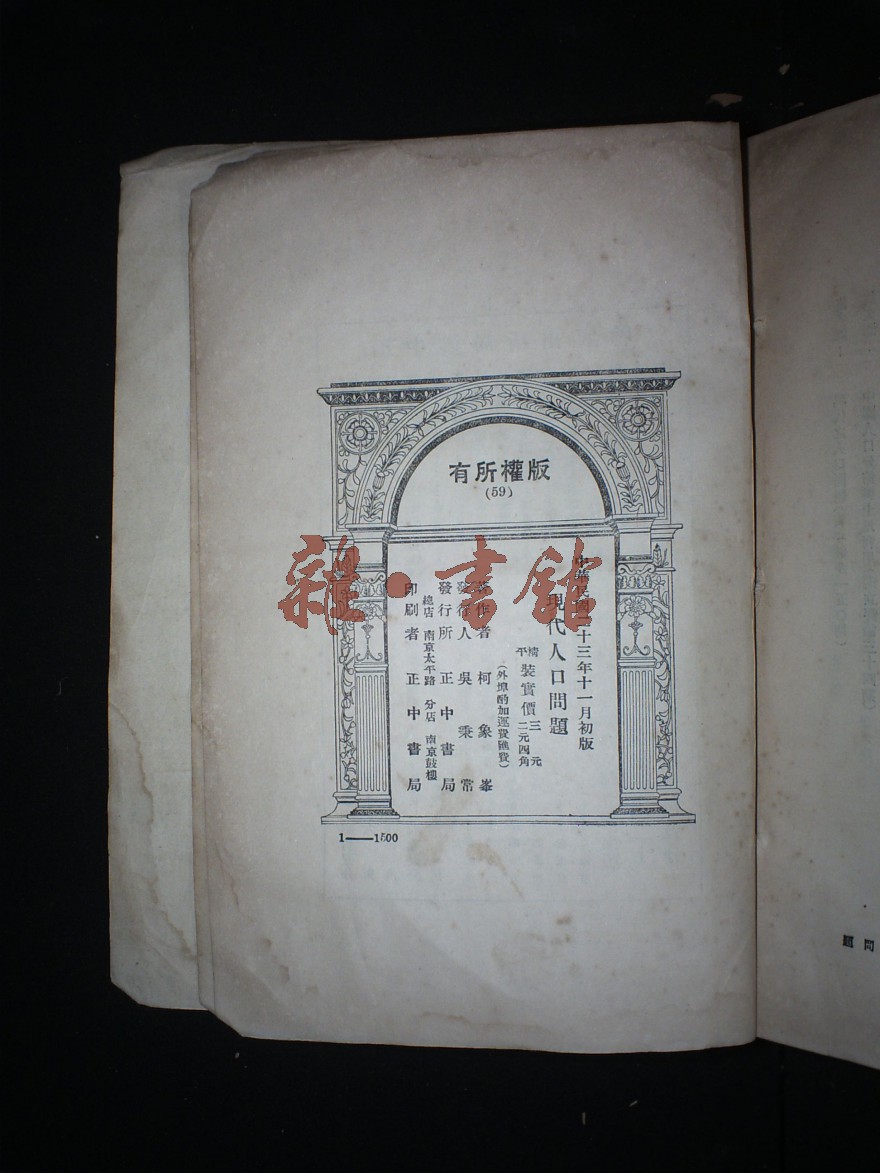 版權所有
(59)
中華民國二十三年十一月初版
現代人口問題
精平裝實價三元二元四角
(外埠酌加運費匯費)
著作者 柯象峯
發行人 吳秉常
發行所 正中書局
總店 南京太平路 分店 南京鼓樓
印刷者 正中書局
1——1500
雜·書館
問題